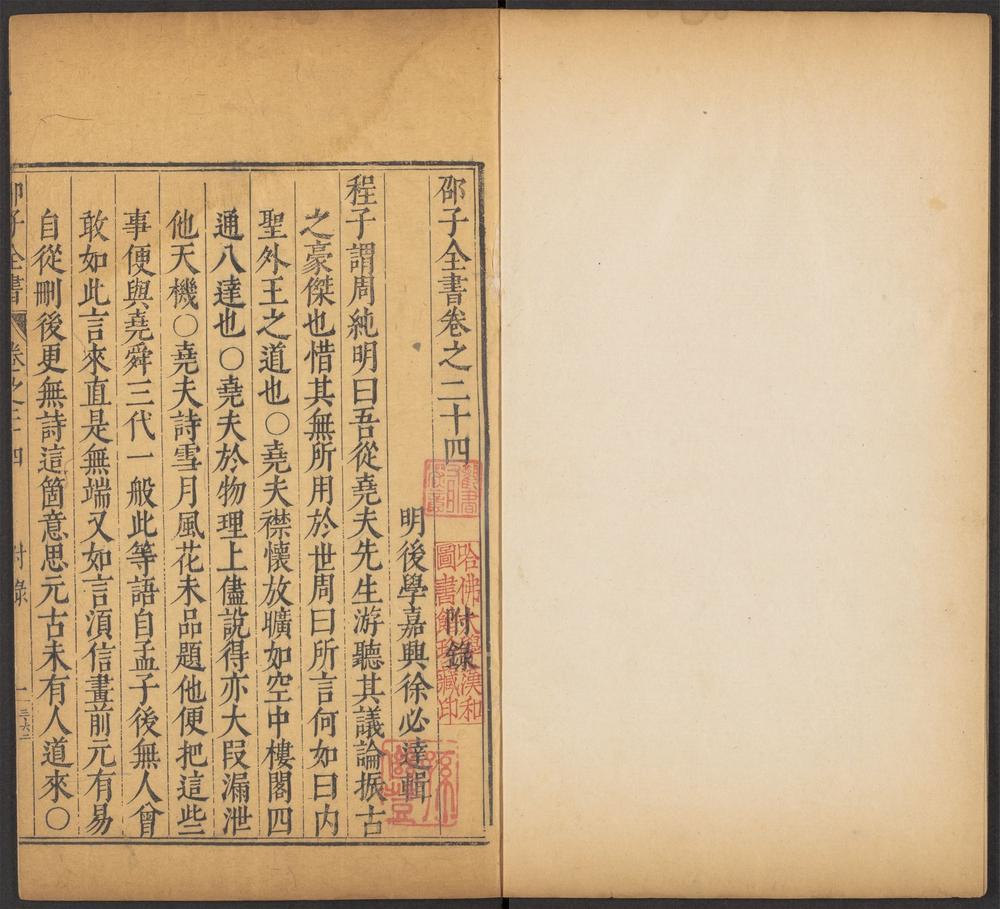 邵子全書卷之二十四
附錄
明後學嘉興徐必達輯
程子謂周純明曰吾從堯夫先生游聽其議論振古
之豪傑也惜其無所用於世周曰所言何如曰内
聖外王之道也○堯夫襟懷放曠如空中樓閣四
通八達也○堯夫於物理上儘說得亦大段漏泄
他天機○堯夫詩雪月風花未品題他便把這些
事便與堯舜三代一般此等語自孟子後無人曾
敢如此言來直是無端又如言須信畫前元有易
自從刪後更無詩這箇意思元古未有人道來○
邵子全書
卷之二十四
附錄
一
哈佛大學漢和
圖書館珍藏印